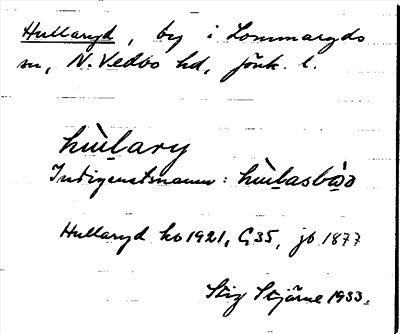 Hullaryd, by i Lommaryds
sn, N. Vedbo hd, Jönk. l.
hùlary
Indigenatsnamn: hùlasbòo
Hullaryd ko 1921, G35, jb 1877
Stig Stjärne 1933.